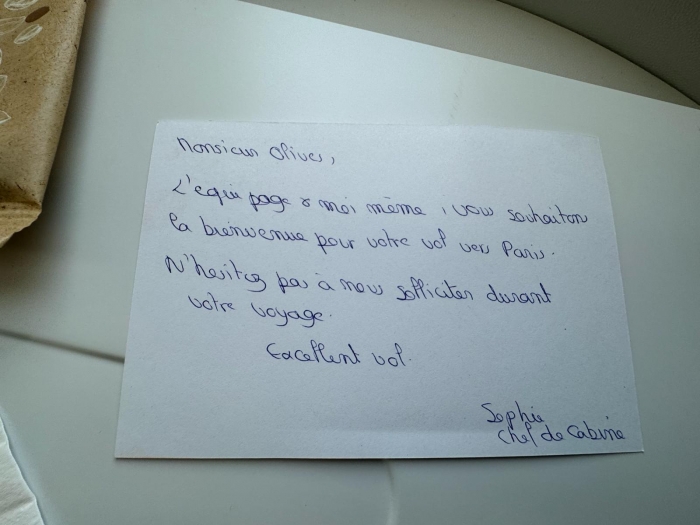 Monsieur Olives,
L'equipage & moi même, vous souhaitons
la bienvenue pour votre vol vers Paris.
N'hesitez pas à nous solliciter durant
votre voyage.
Excellent vol.
Sophie
Chef de Cabine